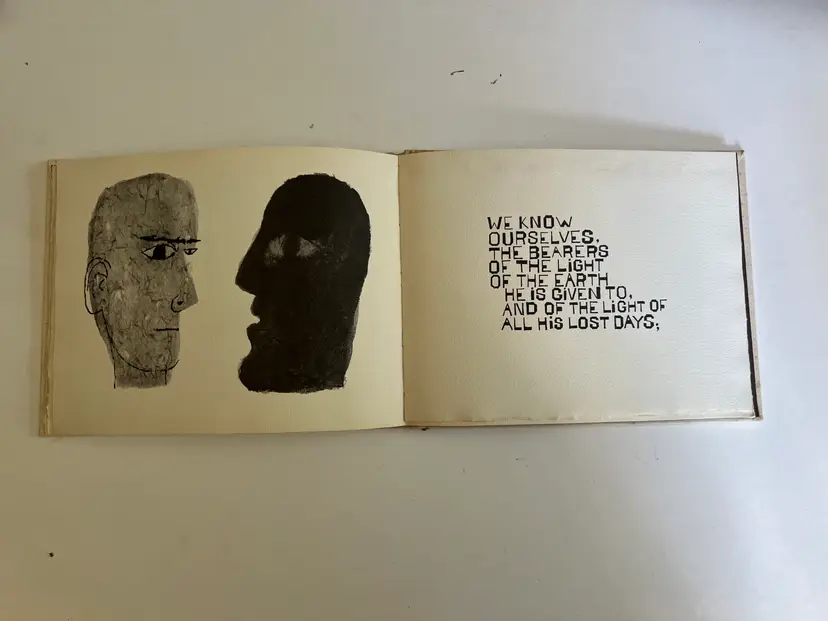 WE KNOW
OURSELVES,
THE BEARERS
OF THE LiGHT
OF THE EARTH
HE iS GiVEN TO,
AND OF THE LiGHT OF
ALL HiS LOST DAYS;